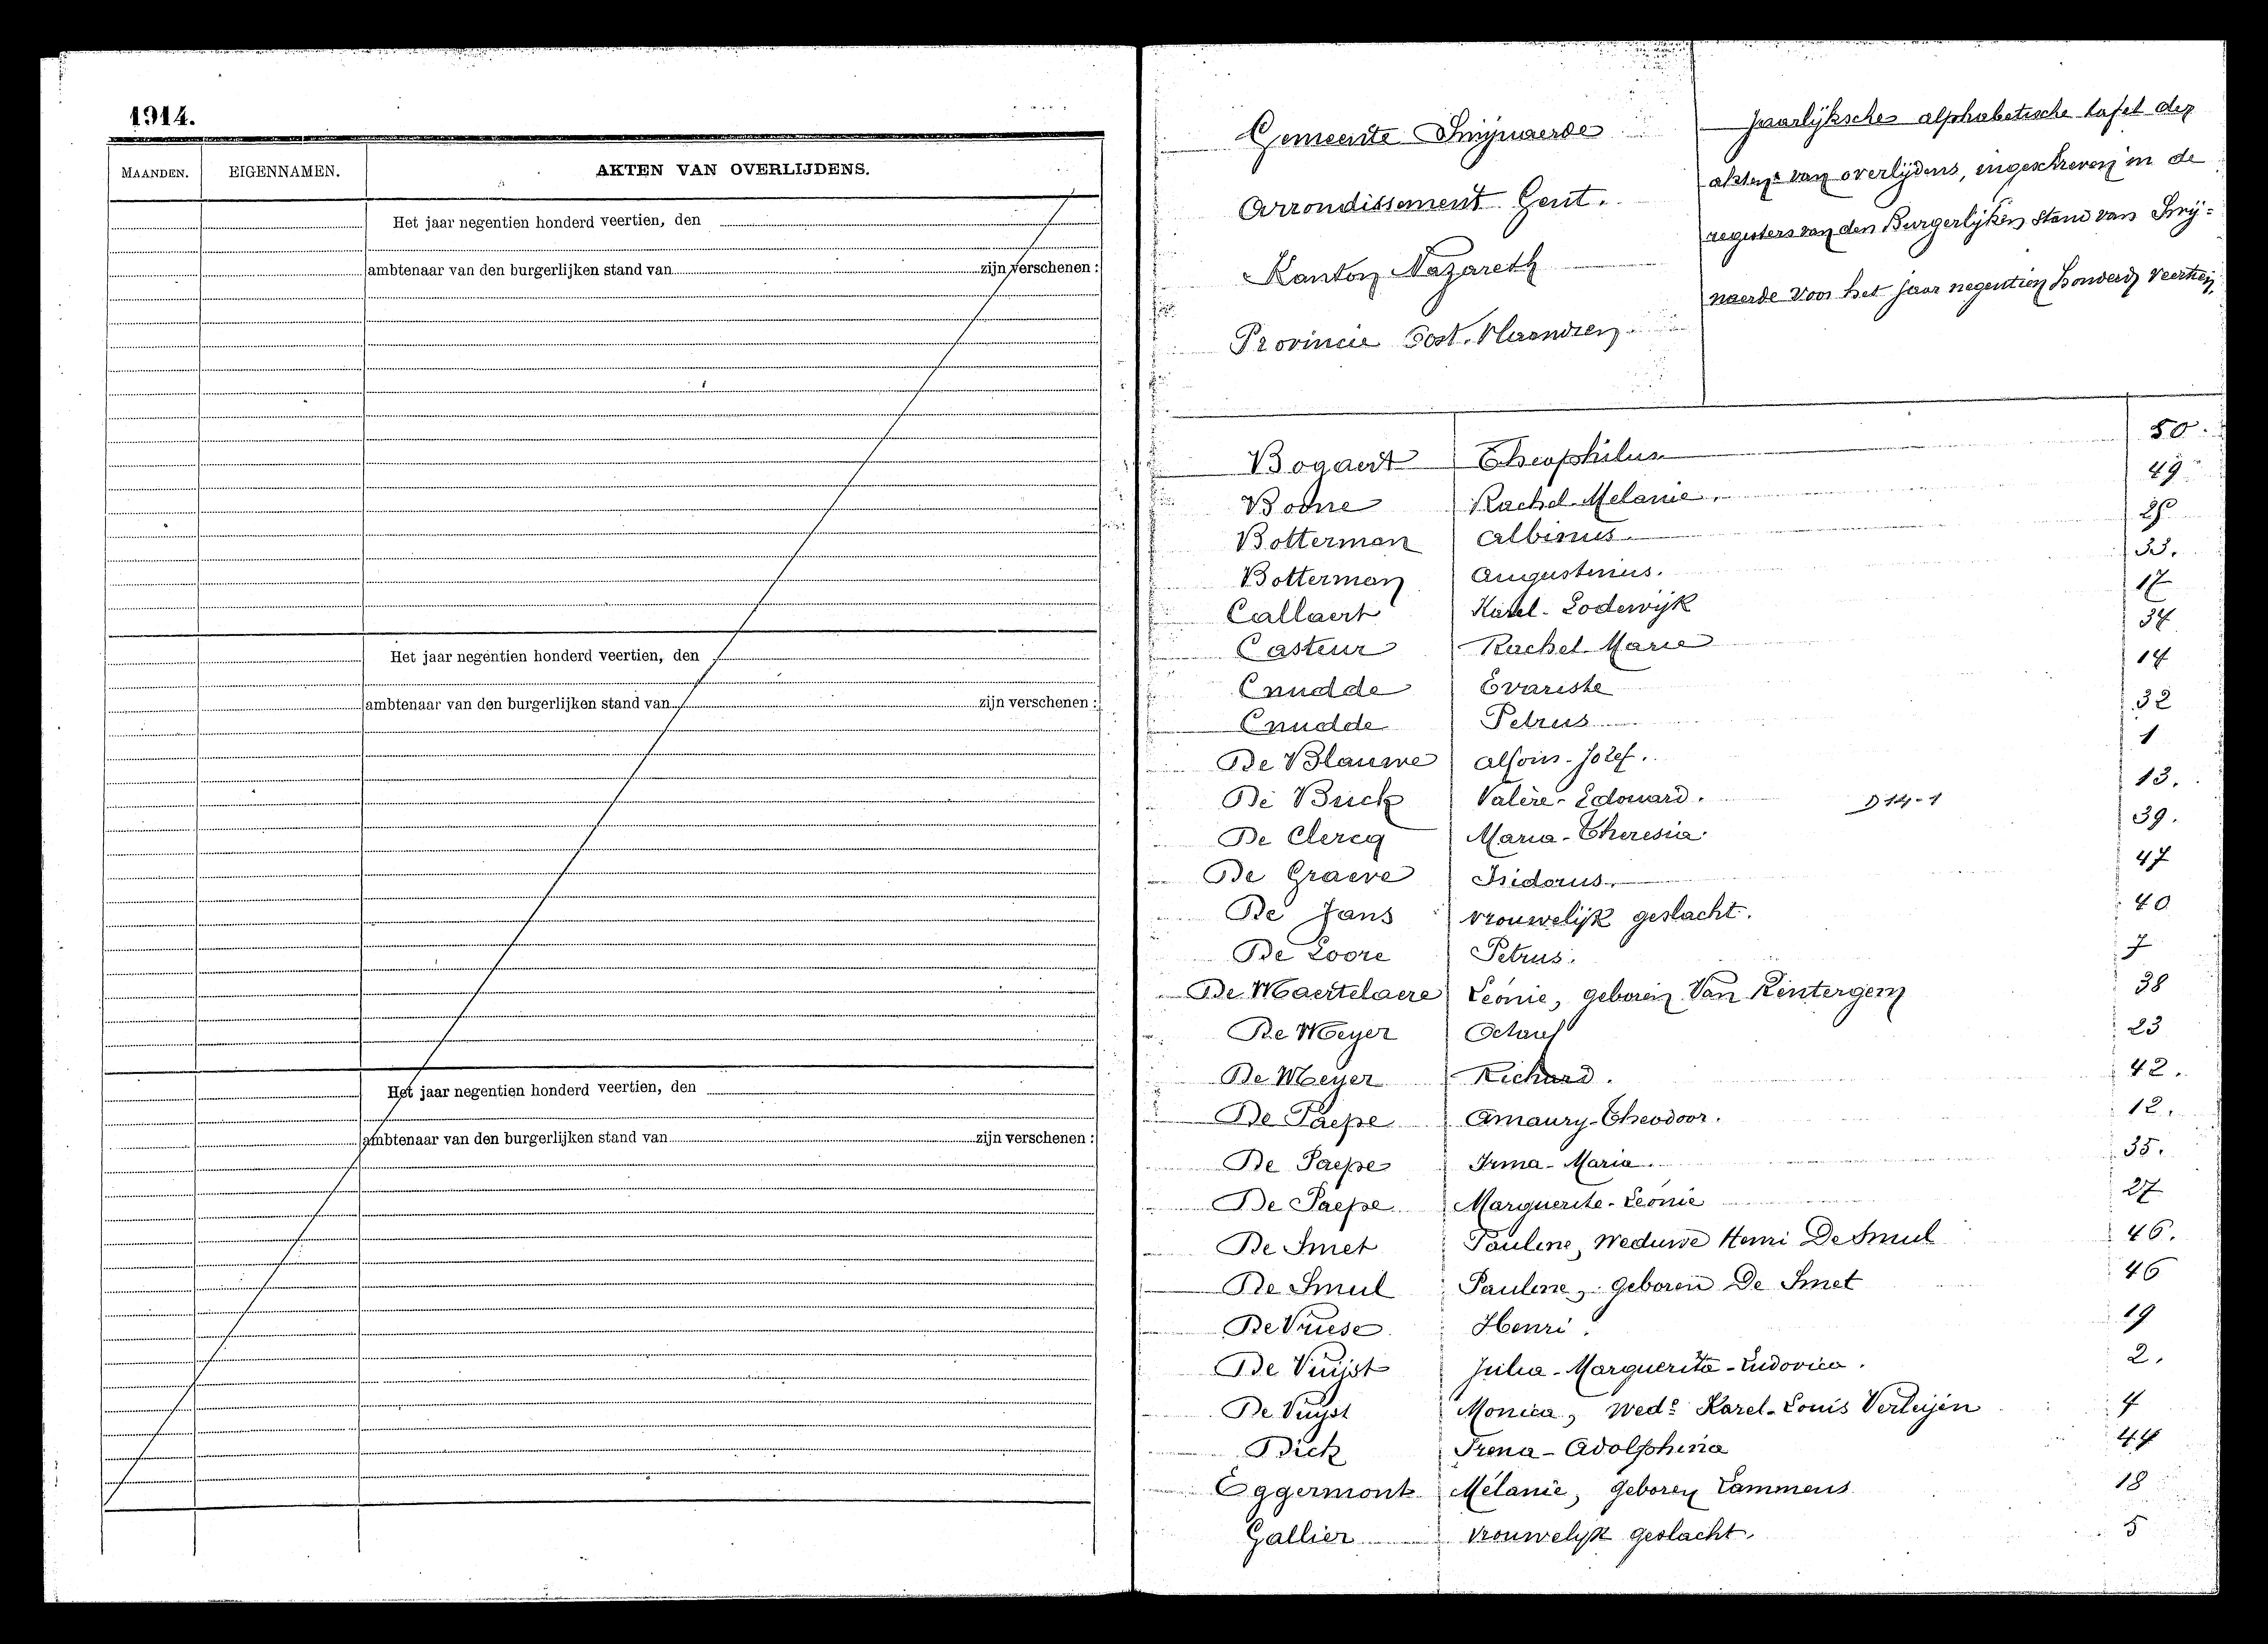 1914.
MAANDEN. EIGENNAMEN. AKTEN VAN OVERLIJDENS.
Het jaar negentien honderd veertien, den
ambtenaar van den burgerlijken stand van zijn verschenen :
Het jaar negentien honderd veertien, den
ambtenaar van den burgerlijken stand van zijn verschenen :
Het jaar negentien honderd veertien, den
ambtenaar van den burgerlijken stand van zijn verschenen :
Gemeente Swijnaerde
Arrondissement Gent.
Kanton Nazareth
Provincie Oost. Vlaandren
Jaarlijksche alphabetische tafel der
akten van overlijdens, ingeschreven in de
registers van den Burgerlijken stand van Swij-
naerde voor het jaar negentien honderd veertien
Bogaert Theophilus 50.
Boone Rachel-Melanie. 49
Botterman Albinus
Botterman Augustinus. 33.
Callaert Karel-Lodewijk 17
Casteur Rachel-Marie 34
Cnudde Evariste 14
Cnudde Petrus 32
De Blauwe Alfons-Jozef. 1
De Brick Valère-Edouard. D 14-1 13.
De Clercq Maria-Theresia 39.
De Graeve Isidorus. 47
De Jans vrouwelijk geslacht. 40
De Loore Petrus. 7
De Maertelaere Leonie, geboren Van Rentergem 38
De Meyer Octaaf 23
De Meyer Richard. 42.
De Paepe Amaury-Theodoor. 12.
De Paepe Irma-Maria. 35.
De Paepe Marguerite-Leonie 27
De Smet Pauline, Weduwe Henri De Smul 46.
De Smul Pauline, geboren De Smet 46
De Vriese Henri. 19
De Vuijst Julia-Marguerita-Ludovica. 2.
De Vuyst Monica, Wede Karel-Louis Verleijen 4
Dick Irena-Adolphina 44
Eggermont Mélanie, geboren Lammens 18
Gallier vrouwelijk geslacht. 5